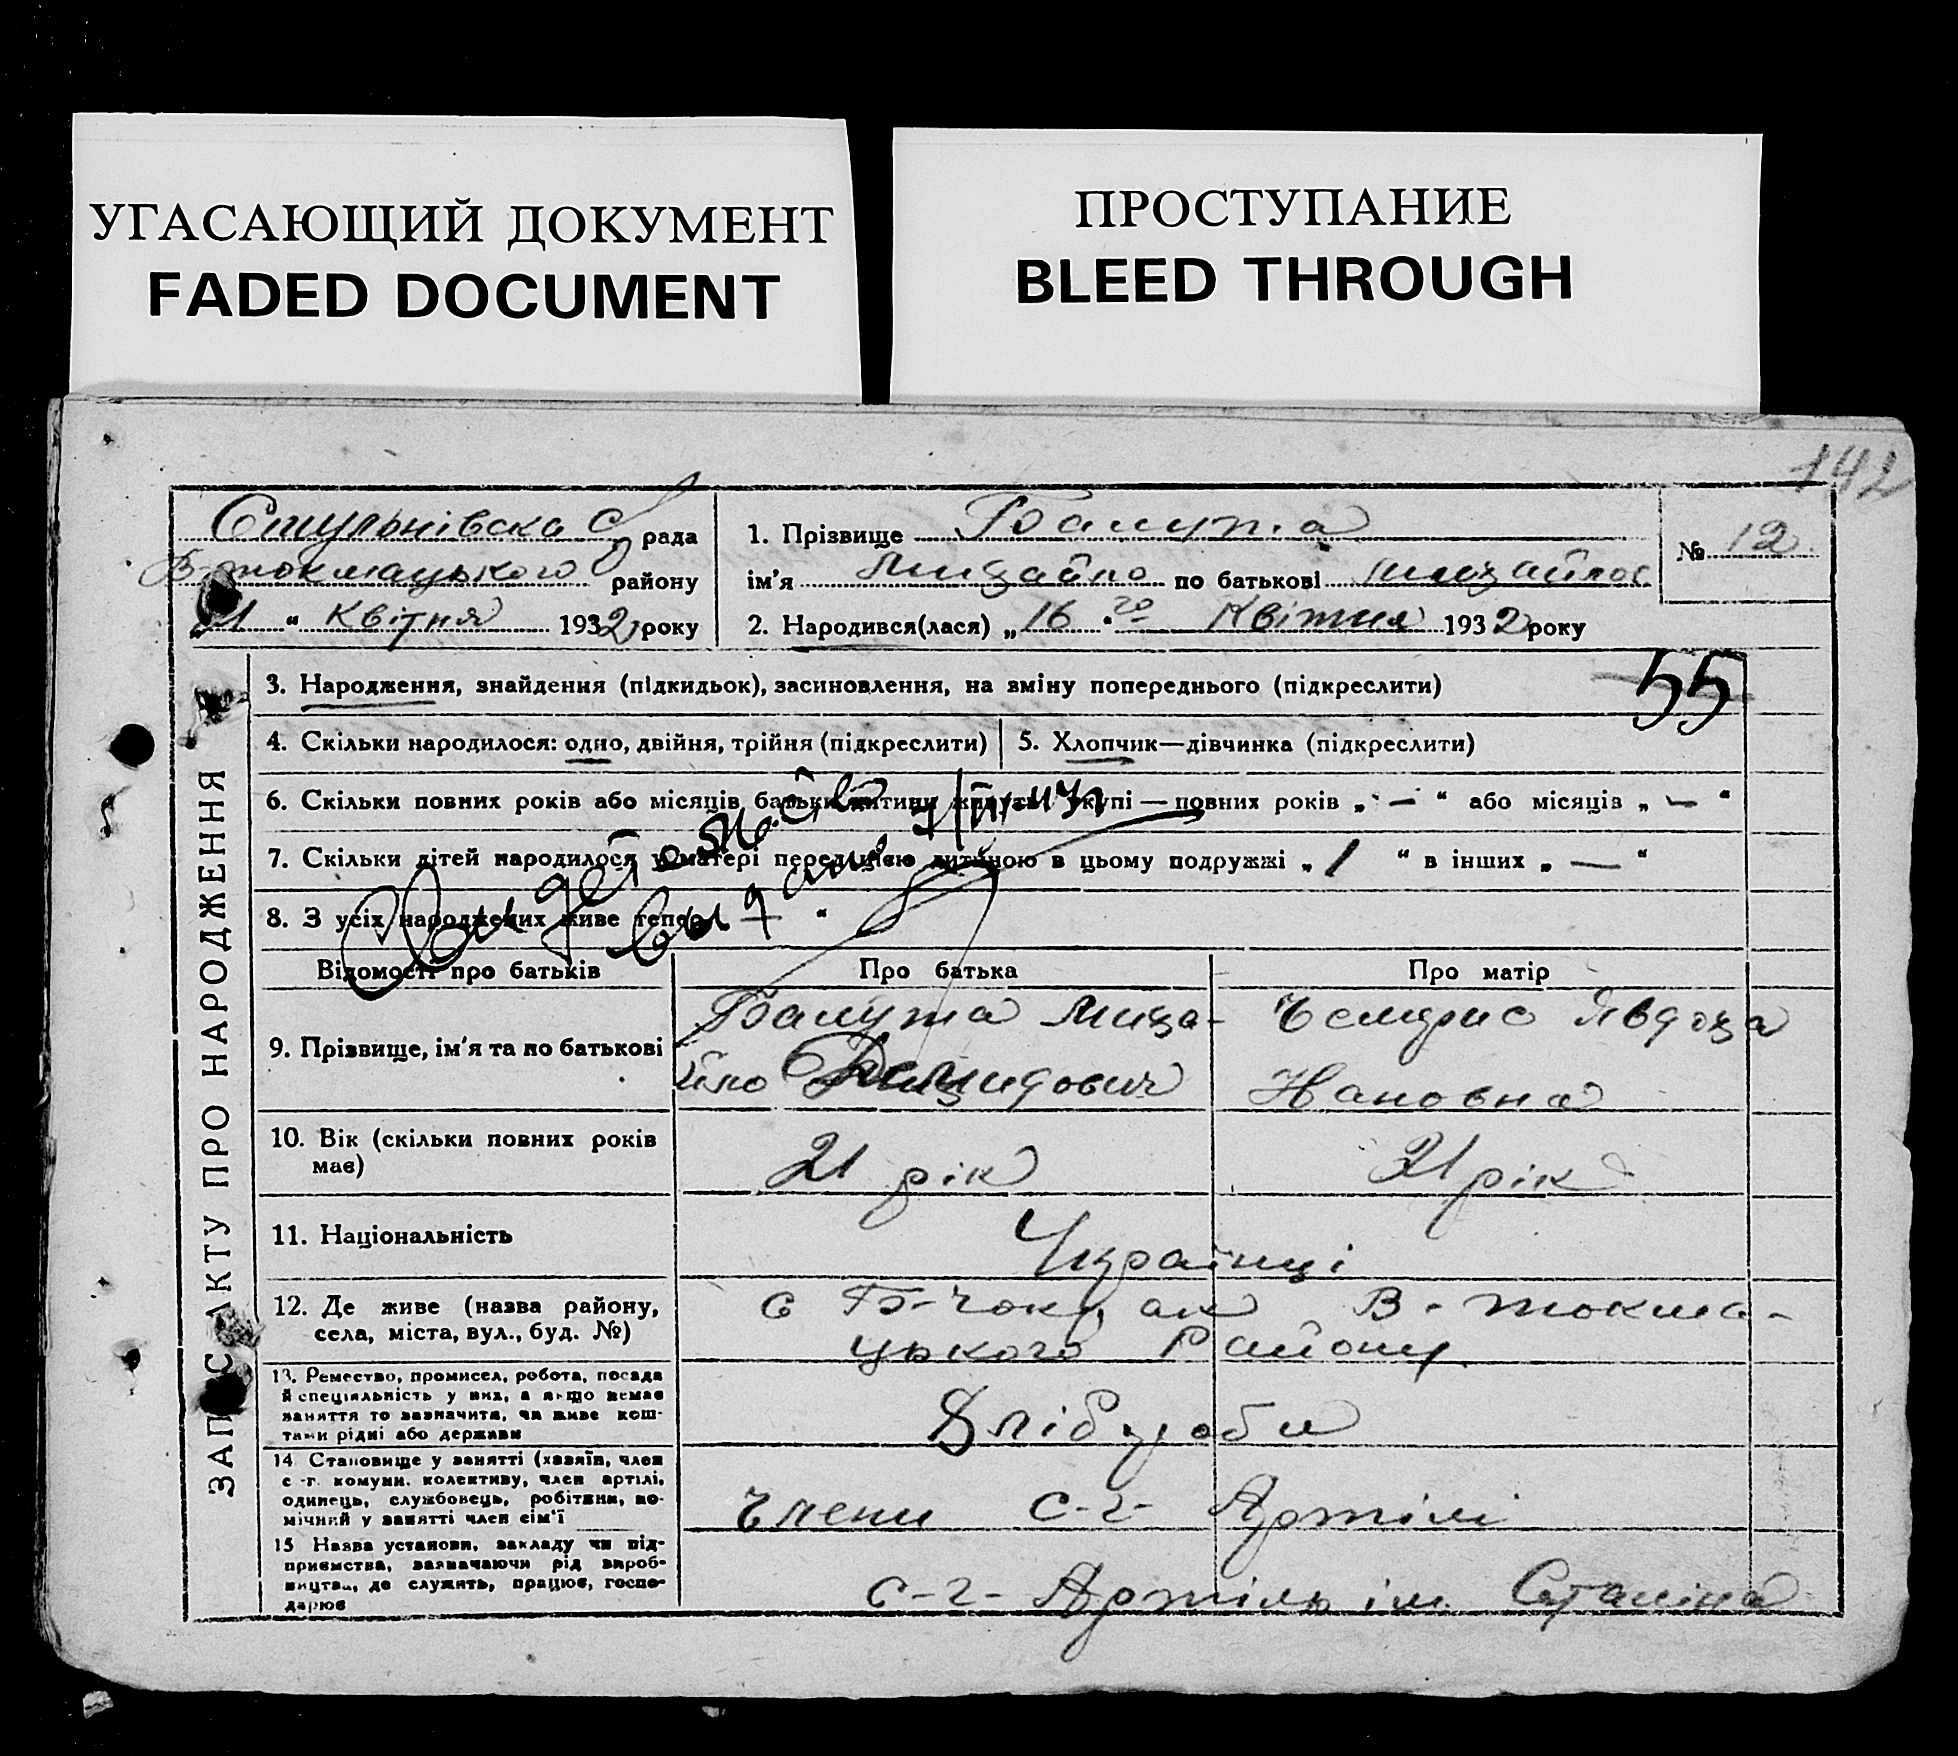 УГАСАЮЩИЙ ДОКУМЕНТ
FADED DOCUMENT
ПРОСТУПАНИЕ
BLEED THROUGH
142
рада
В-токмацького району
21 " Квітня 1932 року
1. Прізвище Балута
ім'я Михайло по батькові Михайлов
2. Народився(лася) „16" го Квітня 1932 року
№ 12
55
ЗАПИС АКТУ ПРО НАРОДЖЕННЯ
3. Народження, знайдення (підкидьок), засиновлення, на зміну попереднього (підкреслити)
4. Скільки народилося: одно, двійня, трійня (підкреслити)
5. Хлопчик—дівчинка (підкреслити)
6. Скільки повних років або місяців батьки дитини жили вкупі — повних років „ — " або місяців „ — "
7. Скільки дітей народилося у матері перед цією дитиною в цьому подружжі „ 1 " в інших „ — "
8. З усіх народжених живе тепер „ — "
Відомості про батьків
Про батька
Про матір
9. Прізвище, ім'я та по батькові
Балута Миха-
йло Демидович
Явдоха
10. Вік (скільки повних років має)
21 рік
21 рік
11. Національність
Українці
12. Де живе (назва району, села, міста, вул., буд. №)
с Б-Чокрак В-Токма-
цького Району
13. Ремество, промисел, робота, посада
й спеціяльність у них, а якщо немає
заняття то зазначити, чи живе кош-
тами рідні або держави
Хлібороби
14. Становище у занятті (хазяїн, член
с.-г. комуни, колективу, член артілі,
одинець, службовець, робітник, по-
мічний у занятті член сім'ї
Члени с-г- Артілі
15 Назва установи, закладу чи під-
приємства, зазначаючи рід вироб-
ництва, де служить, працює, госпо-
дарює
с-г- Артіль ім. Сталіна